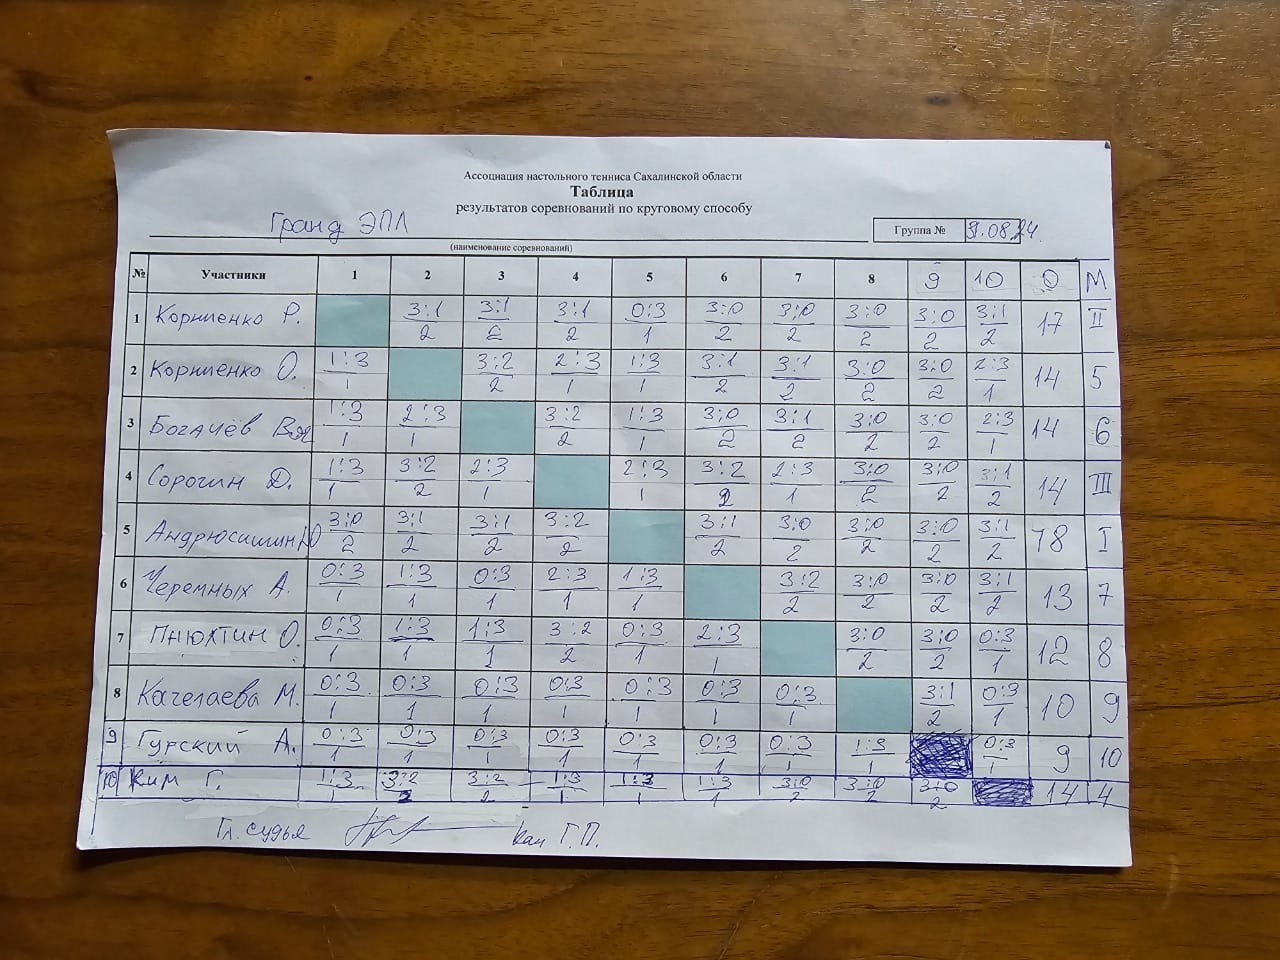 Ассоциация настольного тенниса Сахалинской области
Таблица
результатов соревнований по круговому способу
Гранд ЭПЛ
(наименование соревнований)
Группа № 9.08.24.
№ Участники 1 2 3 4 5 6 7 8 9 10 О М
1 Корниенко Р. 3:1 3:1 3:1 0:3 3:0 3:0 3:0 3:0 3:1 17 II
2 2 2 1 2 2 2 2 2
2 Корниенко О. 1:3 3:2 2:3 1:3 3:1 3:1 3:0 3:0 2:3 14 5
1 2 1 1 2 2 2 2 1
3 Богачев Вяч 1:3 2:3 3:2 1:3 3:0 3:1 3:0 3:0 2:3 14 6
1 1 2 1 2 2 2 2 1
4 Сорочин Д. 1:3 3:2 2:3 2:3 3:2 2:3 3:0 3:0 3:1 14 III
1 2 1 1 2 1 2 2 2
5 Андрюсишин Ю 3:0 3:1 3:1 3:2 3:1 3:0 3:0 3:0 3:1 18 I
2 2 2 2 2 2 2 2 2
6 Черемных А. 0:3 1:3 0:3 2:3 1:3 3:2 3:0 3:0 3:1 13 7
1 1 1 1 1 2 2 2 2
7 Пнюхтин О. 0:3 1:3 1:3 3:2 0:3 2:3 3:0 3:0 0:3 12 8
1 1 1 2 1 1 2 2 1
8 Качегаева М. 0:3 0:3 0:3 0:3 0:3 0:3 0:3 3:1 0:3 10 9
1 1 1 1 1 1 1 2 1
9 Гурский А. 0:3 0:3 0:3 0:3 0:3 0:3 0:3 1:3 0:3 9 10
1 1 1 1 1 1 1 1 1
10 Ким Г. 1:3 3:2 3:2 1:3 1:3 1:3 3:0 3:0 3:0 14 4
1 2 2 1 1 1 2 2 2
Гл. судья Ким Г.П.